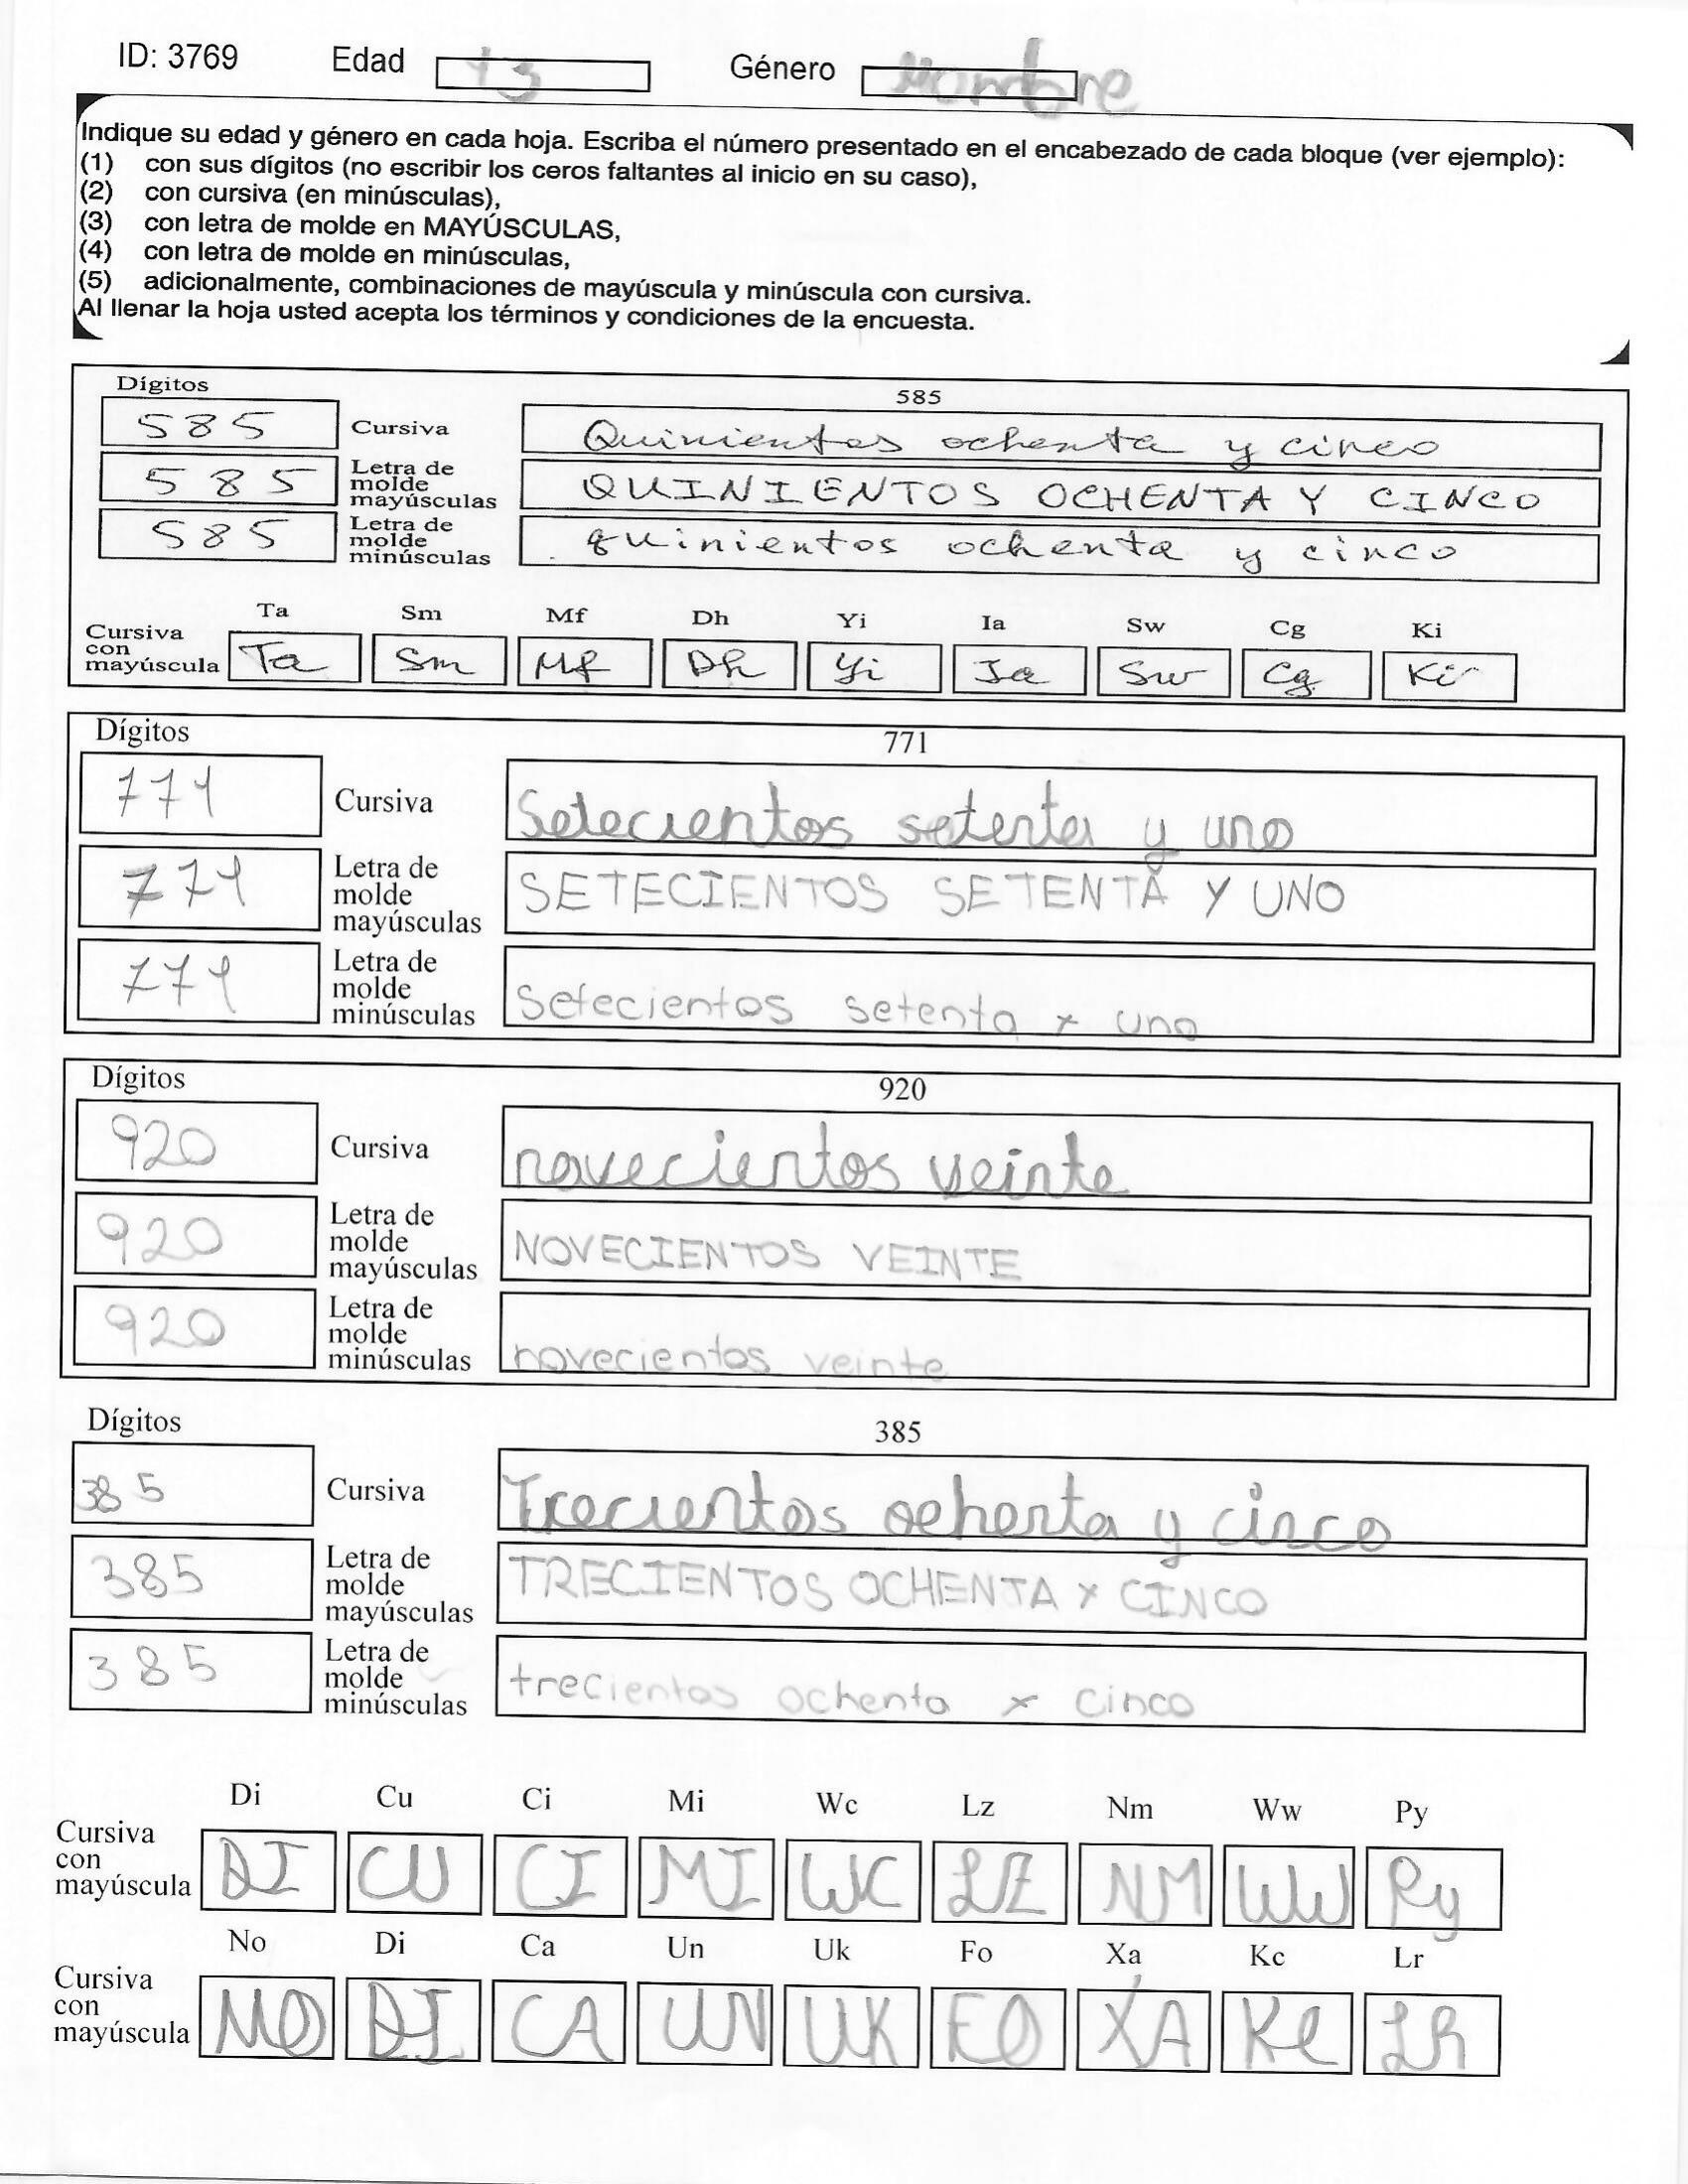 ID: 3769 Edad 13 Género Hombre
Indique su edad y género en cada hoja. Escriba el número presentado en el encabezado de cada bloque (ver ejemplo):
(1) con sus dígitos (no escribir los ceros faltantes al inicio en su caso),
(2) con cursiva (en minúsculas),
(3) con letra de molde en MAYÚSCULAS,
(4) con letra de molde en minúsculas,
(5) adicionalmente, combinaciones de mayúscula y minúscula con cursiva.
Al llenar la hoja usted acepta los términos y condiciones de la encuesta.
Dígitos 585
585 Cursiva Quinientos ochenta y cinco
585 Letra de molde mayúsculas QUINIENTOS OCHENTA Y CINCO
585 Letra de molde minúsculas quinientos ochenta y cinco
Ta Sm Mf Dh Yi Ia Sw Cg Ki
Cursiva con mayúscula Ta Sm Mf Dh Yi Ia Sw Cg Ki
Dígitos 771
771 Cursiva Setecientos setenta y uno
771 Letra de molde mayúsculas SETECIENTOS SETENTA Y UNO
771 Letra de molde minúsculas Setecientos setenta y uno
Dígitos 920
920 Cursiva novecientos veinte
920 Letra de molde mayúsculas NOVECIENTOS VEINTE
920 Letra de molde minúsculas novecientos veinte
Dígitos 385
385 Cursiva Trecientos ochenta y cinco
385 Letra de molde mayúsculas TRECIENTOS OCHENTA Y CINCO
385 Letra de molde minúsculas trecientos ochenta y cinco
Di Cu Ci Mi Wc Lz Nm Ww Py
Cursiva con mayúscula DI CU CI MI WC LZ NM WW Py
No Di Ca Un Uk Fo Xa Kc Lr
Cursiva con mayúscula NO DI CA UN UK FO XA KC LR